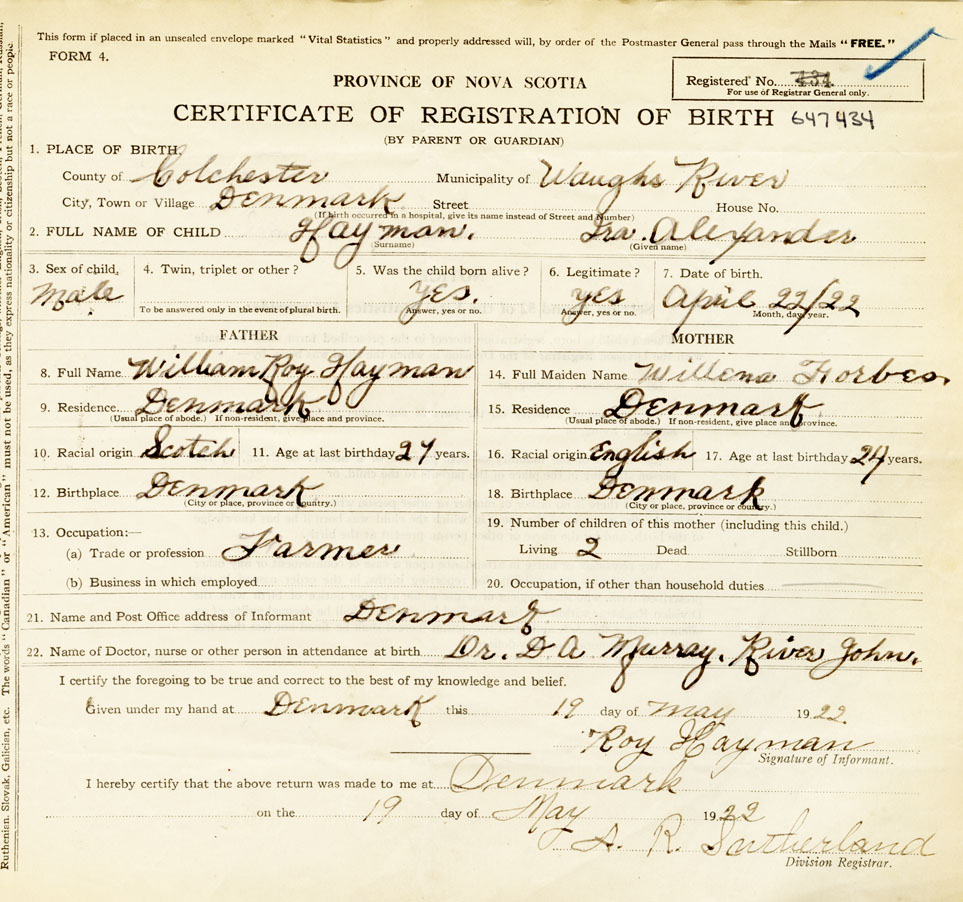 This form if placed in an unsealed envelope marked "Vital Statistics" and properly addressed will, by order of the Postmaster General pass through the Mails "FREE."
FORM 4.
Registered No. 434
For use of Registrar General only.
PROVINCE OF NOVA SCOTIA
CERTIFICATE OF REGISTRATION OF BIRTH 647434
(BY PARENT OR GUARDIAN)
1. PLACE OF BIRTH.
County of Colchester Municipality of Waughs River
City, Town or Village Denmark Street House No.
(If birth occurred in a hospital, give its name instead of Street and Number)
2. FULL NAME OF CHILD Hayman. Ira. Alexander
(Surname) (Given name)
3. Sex of child. 4. Twin, triplet or other? 5. Was the child born alive? 6. Legitimate? 7. Date of birth.
Male Yes. yes April 22/22
To be answered only in the event of plural birth. Answer, yes or no. Answer, yes or no. Month, day, year.
FATHER
8. Full Name William Roy Hayman
9. Residence Denmark
(Usual place of abode.) If non-resident, give place and province.
10. Racial origin Scotch 11. Age at last birthday 27 years.
12. Birthplace Denmark
(City or place, province or country.)
13. Occupation:—
(a) Trade or profession Farmer
(b) Business in which employed
MOTHER
14. Full Maiden Name Willena Forbes
15. Residence Denmark
(Usual place of abode.) If non-resident, give place and province.
16. Racial origin English 17. Age at last birthday 24 years.
18. Birthplace Denmark
(City or place, province or country.)
19. Number of children of this mother (including this child.)
Living 2 Dead Stillborn
20. Occupation, if other than household duties
21. Name and Post Office address of Informant Denmark
22. Name of Doctor, nurse or other person in attendance at birth Dr. D A Murray. River John.
I certify the foregoing to be true and correct to the best of my knowledge and belief.
Given under my hand at Denmark this 19 day of May 1922
Roy Hayman
Signature of Informant.
I hereby certify that the above return was made to me at Denmark
on the 19 day of May 1922
A. R. Sutherland
Division Registrar.
Ruthenian, Slovak, Galician, etc. The words "Canadian" or "American" must not be used, as they express nationality or citizenship but not a race or people.